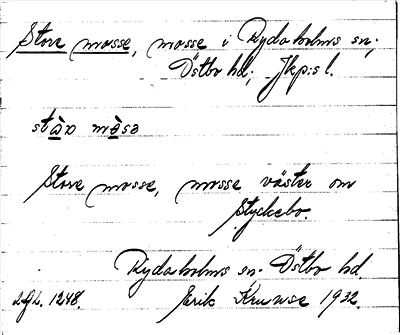 Store mosse, mosse i Rydaholms sn,
Östbo hd, Jkp:s l.
Store mosse, mosse väster om
Styckebo.
Rydaholms sn. Östbo hd.
1248. Erik 1932.